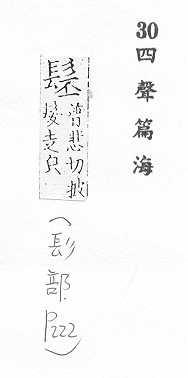 30四聲篇海
髬普悲切披
髮走皃
(髟部. P222)